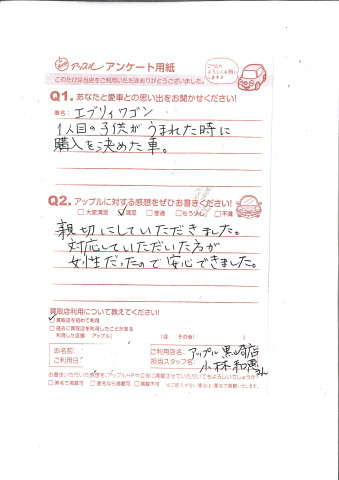 アップル アンケート用紙
このたびは当店をご利用いただきありがとうございました。
Q1. あなたと愛車との思い出をお聞かせください!
車名: エブリィワゴン
1人目の子供がうまれた時に
購入を決めた車。
Q2. アップルに対する感想をぜひお書きください!
□大変満足 ☑満足 □普通 □もう少し □不満
親切にしていただきました。
対応していただいた方が
女性だったので安心できました。
買取店利用について教えてください!
☑買取店を初めて利用
□過去に買取店を利用したことがある
利用した店舗: アップル( )店 その他( )
お名前: ご利用店名: アップル黒崎店
ご利用日: 担当スタッフ名: 小林
さん
お書きいただいた感想を、アップルHPや広告に掲載させていただいてもよろしいでしょうか
□実名で掲載可 □匿名なら掲載可 □掲載不可